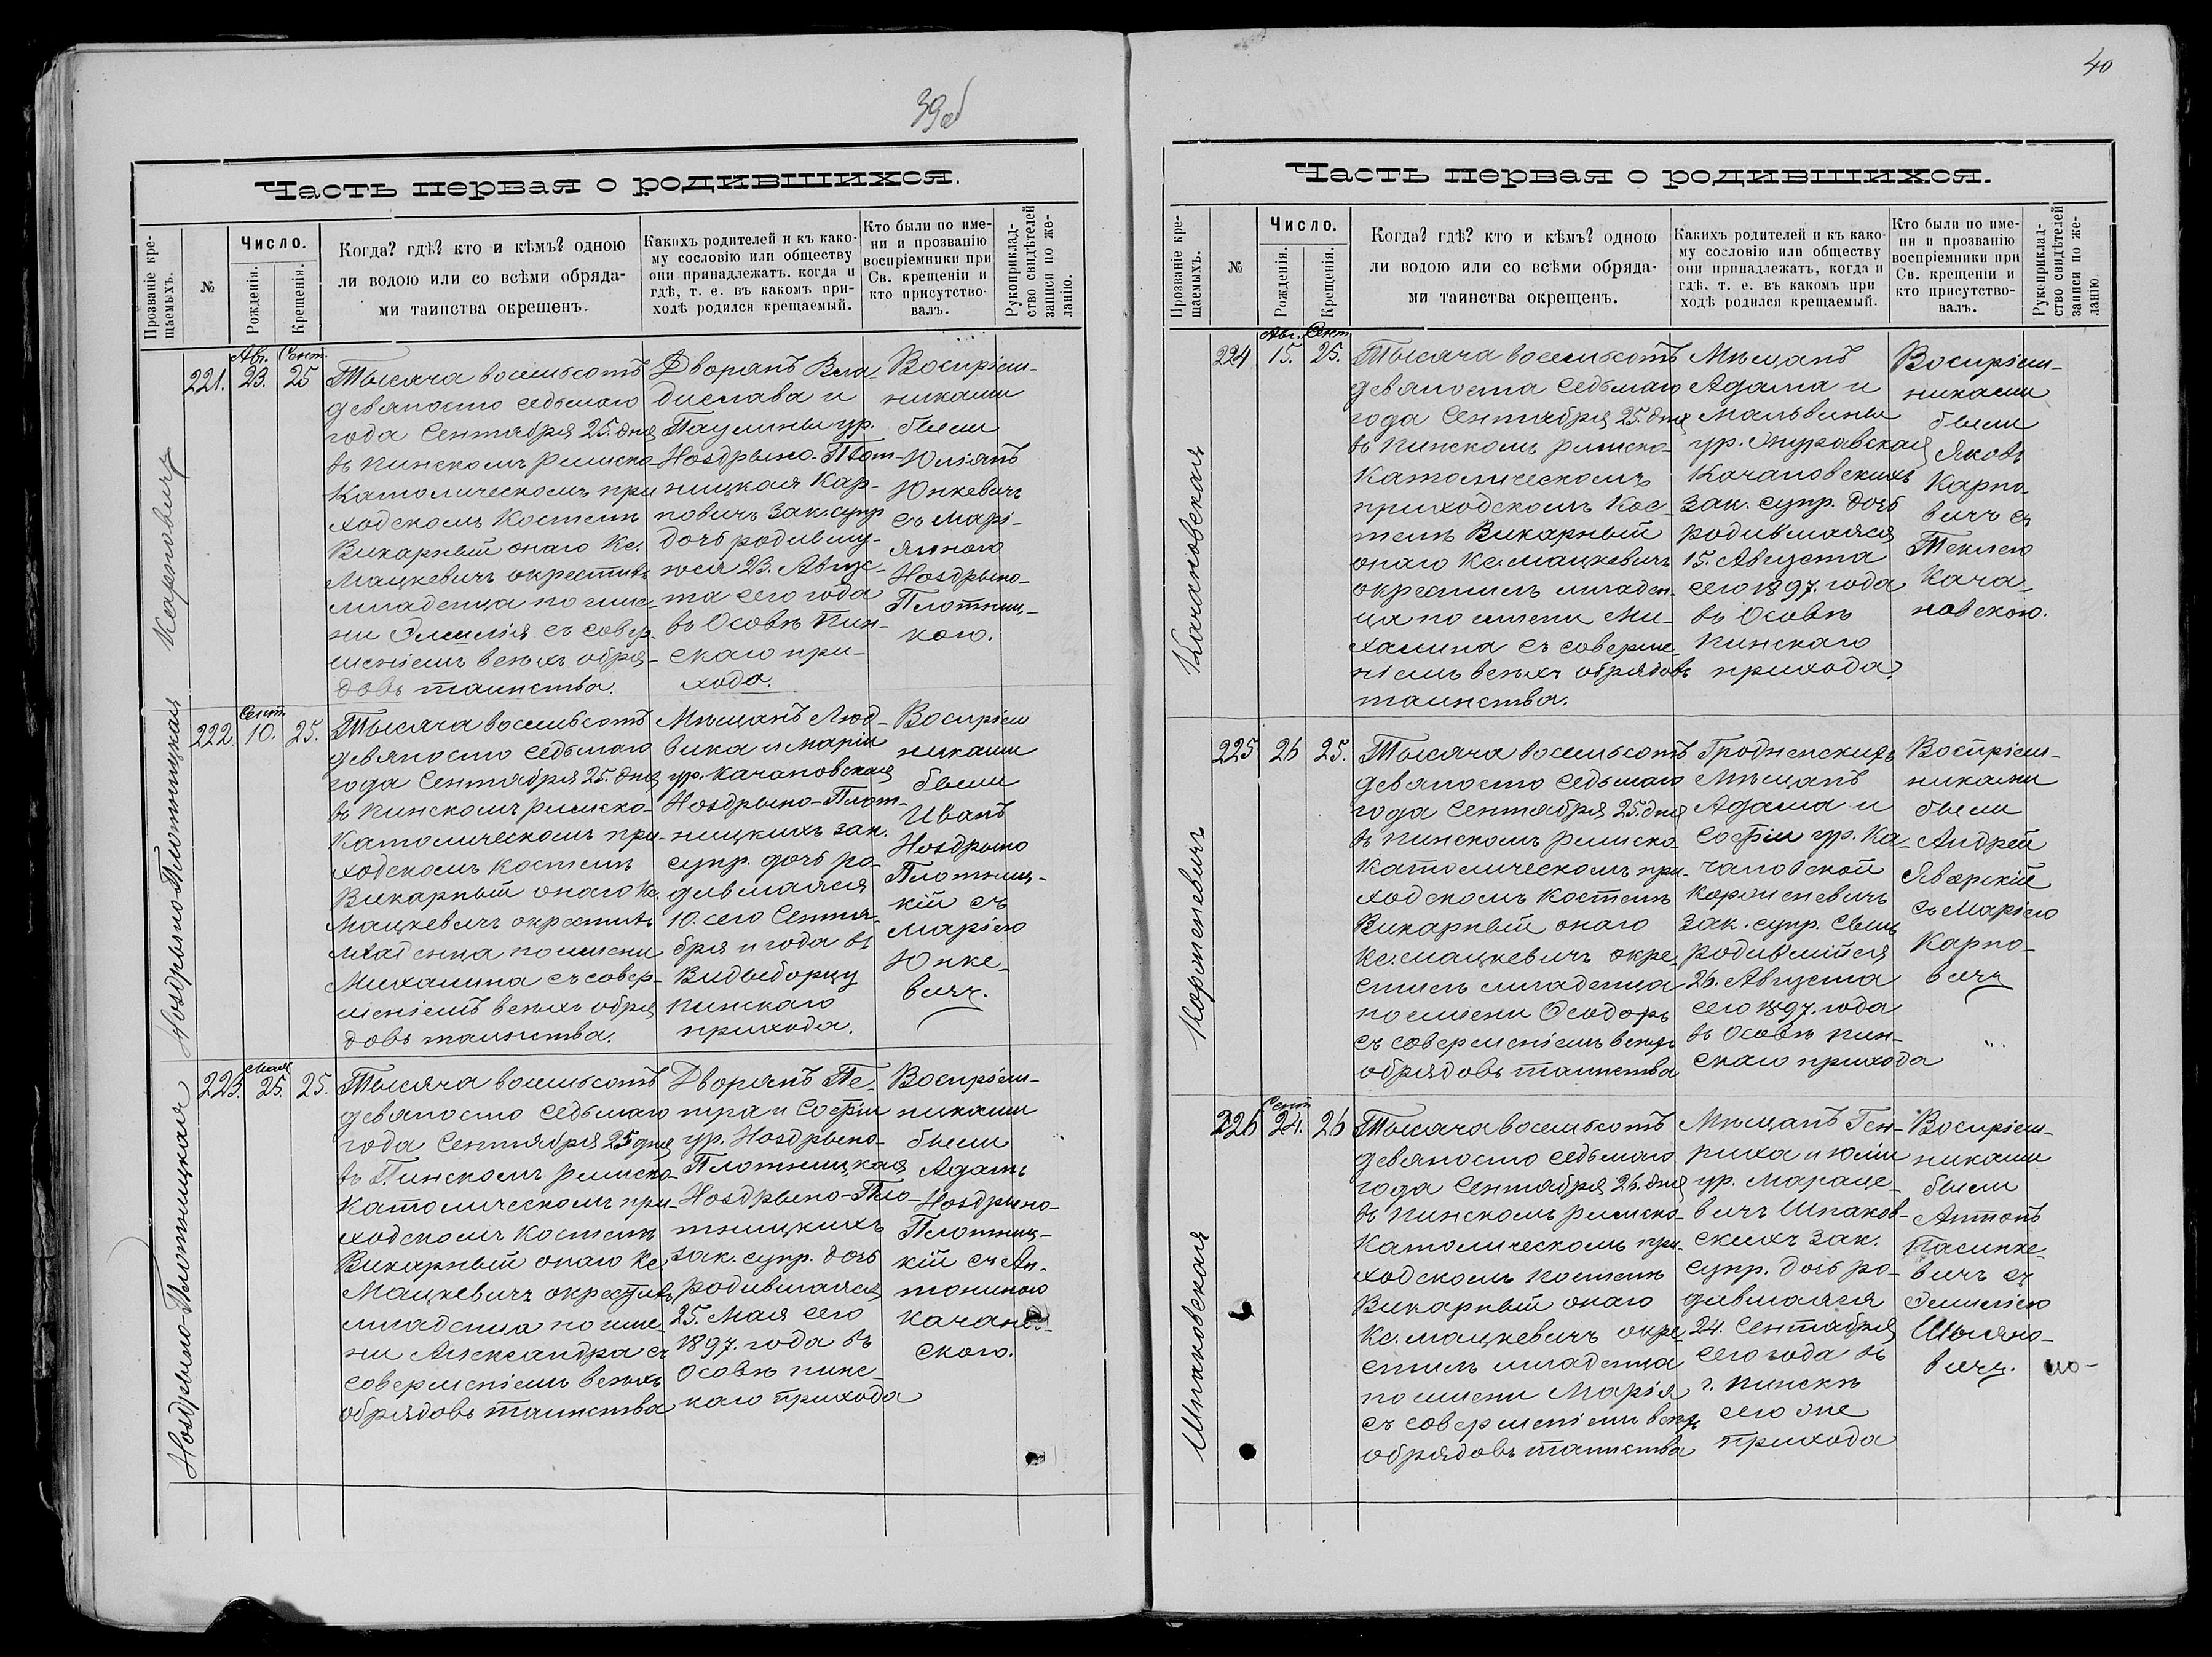 39об
Часть первая о родившихся.
Прозваніе кре-
щаемыхъ.
№
Число.
Рожденія.
Крещенія.
Когда? гдѣ? кто и кѣмъ? одною
ли водою или со всѣми обряда-
ми таинства окрещенъ.
Какихъ родителей и къ како-
му сословію или обществу
они принадлежатъ. когда и
гдѣ, т. е. въ какомъ при-
ходѣ родился крещаемый.
Кто были по име-
ни и прозванію
воспріемники при
Св. крещеніи и
кто присутство-
валъ.
Рукоприклад-
ство свидѣтелей
записи по же-
ланію.
Карповичъ
221.
Авг.
23.
Сент.
25
Тысяча восемьсотъ
девяносто седьмаго
года Сентября 25. дня
въ Пинскомъ римско-
Католическомъ при
ходскомъ Костелѣ
Викарный онаго Кс.
Мацкевичъ окрестилъ
младенца по име-
ни Эмилія съ совер-
шеніемъ всѣхъ обря-
довъ таинства.
Дворянъ Вла-
дислава и
Паулины ур.
Ноздрыно-Плот-
ницкая Кар-
повичъ зак. супр
дочь родившу-
юся 23. Авгус-
та сего года
въ Осовѣ Пин-
скаго при-
хода.
Воспріем-
никами
были
Юліянъ
Юнкевичъ
съ Марі-
янною
Ноздрыно-
Плотниц-
кою.
Ноздрыно-Плотницкая
222.
Сент.
10.
25.
Тысяча восемьсотъ
девяносто седьмаго
года Сентября 25. дня
въ Пинскомъ римско-
Католическомъ при-
ходскомъ костелѣ
Викарный онаго Кс.
Мацкевичъ окрестилъ
младенца по имени
Михалина съ совер-
шеніемъ всѣхъ обря
довъ таинства.
Мѣщанъ Люд-
вика и Маріи
ур. Качановская
Ноздрыно-Плот-
ницкихъ зак.
супр. дочь ро-
дившаяся
10. сего Сентя-
бря и года въ
Видыборцу
Пинскаго
прихода.
Воспріем
никами
были
Иванъ
Ноздрыно
Плотниц-
кій съ
Маріею
Юнке-
вичъ.
Ноздрыно-Плотницкая
223.
Мая
25.
25.
Тысяча восемьсотъ
девяносто седьмаго
года Сентября 25 дня
въ Пинскомъ римско-
Католическомъ при-
ходскомъ Костелѣ
Викарный онаго Кс.
Мацкевичъ окрестилъ
младенца по име-
ни Александра съ
совершеніемъ всѣхъ
обрядовъ таинства
Дворянъ Пе-
тра и Софіи
ур. Ноздрыно-
Плотницкая
Ноздрыно-Пло-
тницкихъ
зак. супр. дочь
родившаяся
25. Мая сего
1897. года въ
Осовѣ пинс-
каго прихода
Воспріем-
никами
были
Адамъ
Ноздрыно-
Плотниц-
кій съ Ан-
тониною
Качанов-
скою.
40
Часть первая о родившихся.
Прозваніе кре-
щаемыхъ.
№
Число.
Рожденія.
Крещенія.
Когда? гдѣ? кто и кѣмъ? одною
ли водою или со всѣми обряда-
ми таинства окрещенъ.
Какихъ родителей и къ како-
му сословію или обществу
они принадлежатъ, когда и
гдѣ, т. е. въ какомъ при
ходѣ родился крещаемый.
Кто были по име-
ни и прозванію
воспріемники при
Св. крещеніи и
кто присутство-
валъ.
Рукоприклад-
ство свидѣтелей
записи по же-
ланію
Качановская
224
Авг.
15.
Сент
25.
Тысяча восемьсотъ
девяноста седьмаго
года Сентября 25. дня
въ Пинскомъ римско-
Католическомъ
приходскомъ Кос-
телѣ Викарный
онаго Кс Мацкевичъ
окрестилъ младен-
ца по имени Ми-
халина съ соверше-
ніемъ всѣхъ обрядовъ
таинства.
Мѣщанъ
Адама и
Мальвины
ур. Журавская
Качановскихъ
зак. супр. дочь
родившаяся
15. Августа
сего 1897. года
въ Осовѣ
Пинскаго
прихода.
Воспріем-
никами
были
Яковъ
Карпо-
вичъ съ
Теклею
Кача-
новскою.
Корженевичъ
225
26
25.
Тысяча восемьсотъ
девяносто седьмаго
года Сентября 25 дня
въ Пинскомъ римско-
Католическомъ при-
ходскомъ Костелѣ
Викарный онаго
Кс. Мацкевичъ окре-
стилъ младенца
по имени Ѳеодоръ
съ совершеніемъ всѣхъ
обрядовъ таинства
Гродненскихъ
Мѣщанъ
Адама и
Софіи ур. Ка-
чановской
Корженевичъ
зак. супр. сынъ
родившійся
26. Августа
сего 1897. года
въ Осовѣ Пин-
скаго прихода
Воспріем-
никами
были
Андрей
Яворскій
съ Маріею
Карпо-
вичъ
Шпаковская
226
Сент
24.
26
Тысяча восемьсотъ
девяносто седьмаго
года Сентября 26. дня
въ Пинскомъ римско-
Католическомъ при-
ходскомъ Костелѣ
Викарный онаго
Кс. Мацкевичъ окре-
стилъ младенца
по имени Марія
съ совершеніемъ всѣхъ
обрядовъ таинства
Мѣщанъ Ген-
риха и Юліи
ур. Мараце-
вичъ Шпаков-
скихъ зак.
супр. дочь ро-
дившаяся
24. Сентября
сего года въ
г. Пинскѣ
сего же
прихода
Воспріем-
никами
были
Антонъ
Пасинке-
вичъ съ
Эмиліею
вичъ.